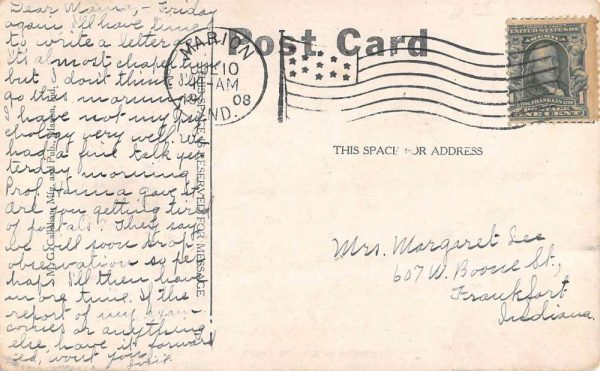 Dear Mama, - Friday
again I'll have time
to write a letter
It's almost chapel time
but I don't think I'll
go this morning
I have not my psy-
chology very well. We
had a fine talk yes-
terday morning
Prof. Hanna gave it.
Are you getting tired
of postals? They say
we will soon drop
observation so per-
haps I'll then have
more time. If the
report of my exam
comes or anything
else have it forward
ed, won't you
Post Card
MARION
JUL 10
4 -AM
1908
IND.
UNITED STATES OF AMERICA
FRANKLIN
ONE CENT
THIS SPACE FOR ADDRESS
THIS SPACE RESERVED FOR MESSAGE
Mfg. and Pub., Marion, Ind.
Mrs. Margaret Lee
607 W. Boone St.,
Frankfort
Indiana.